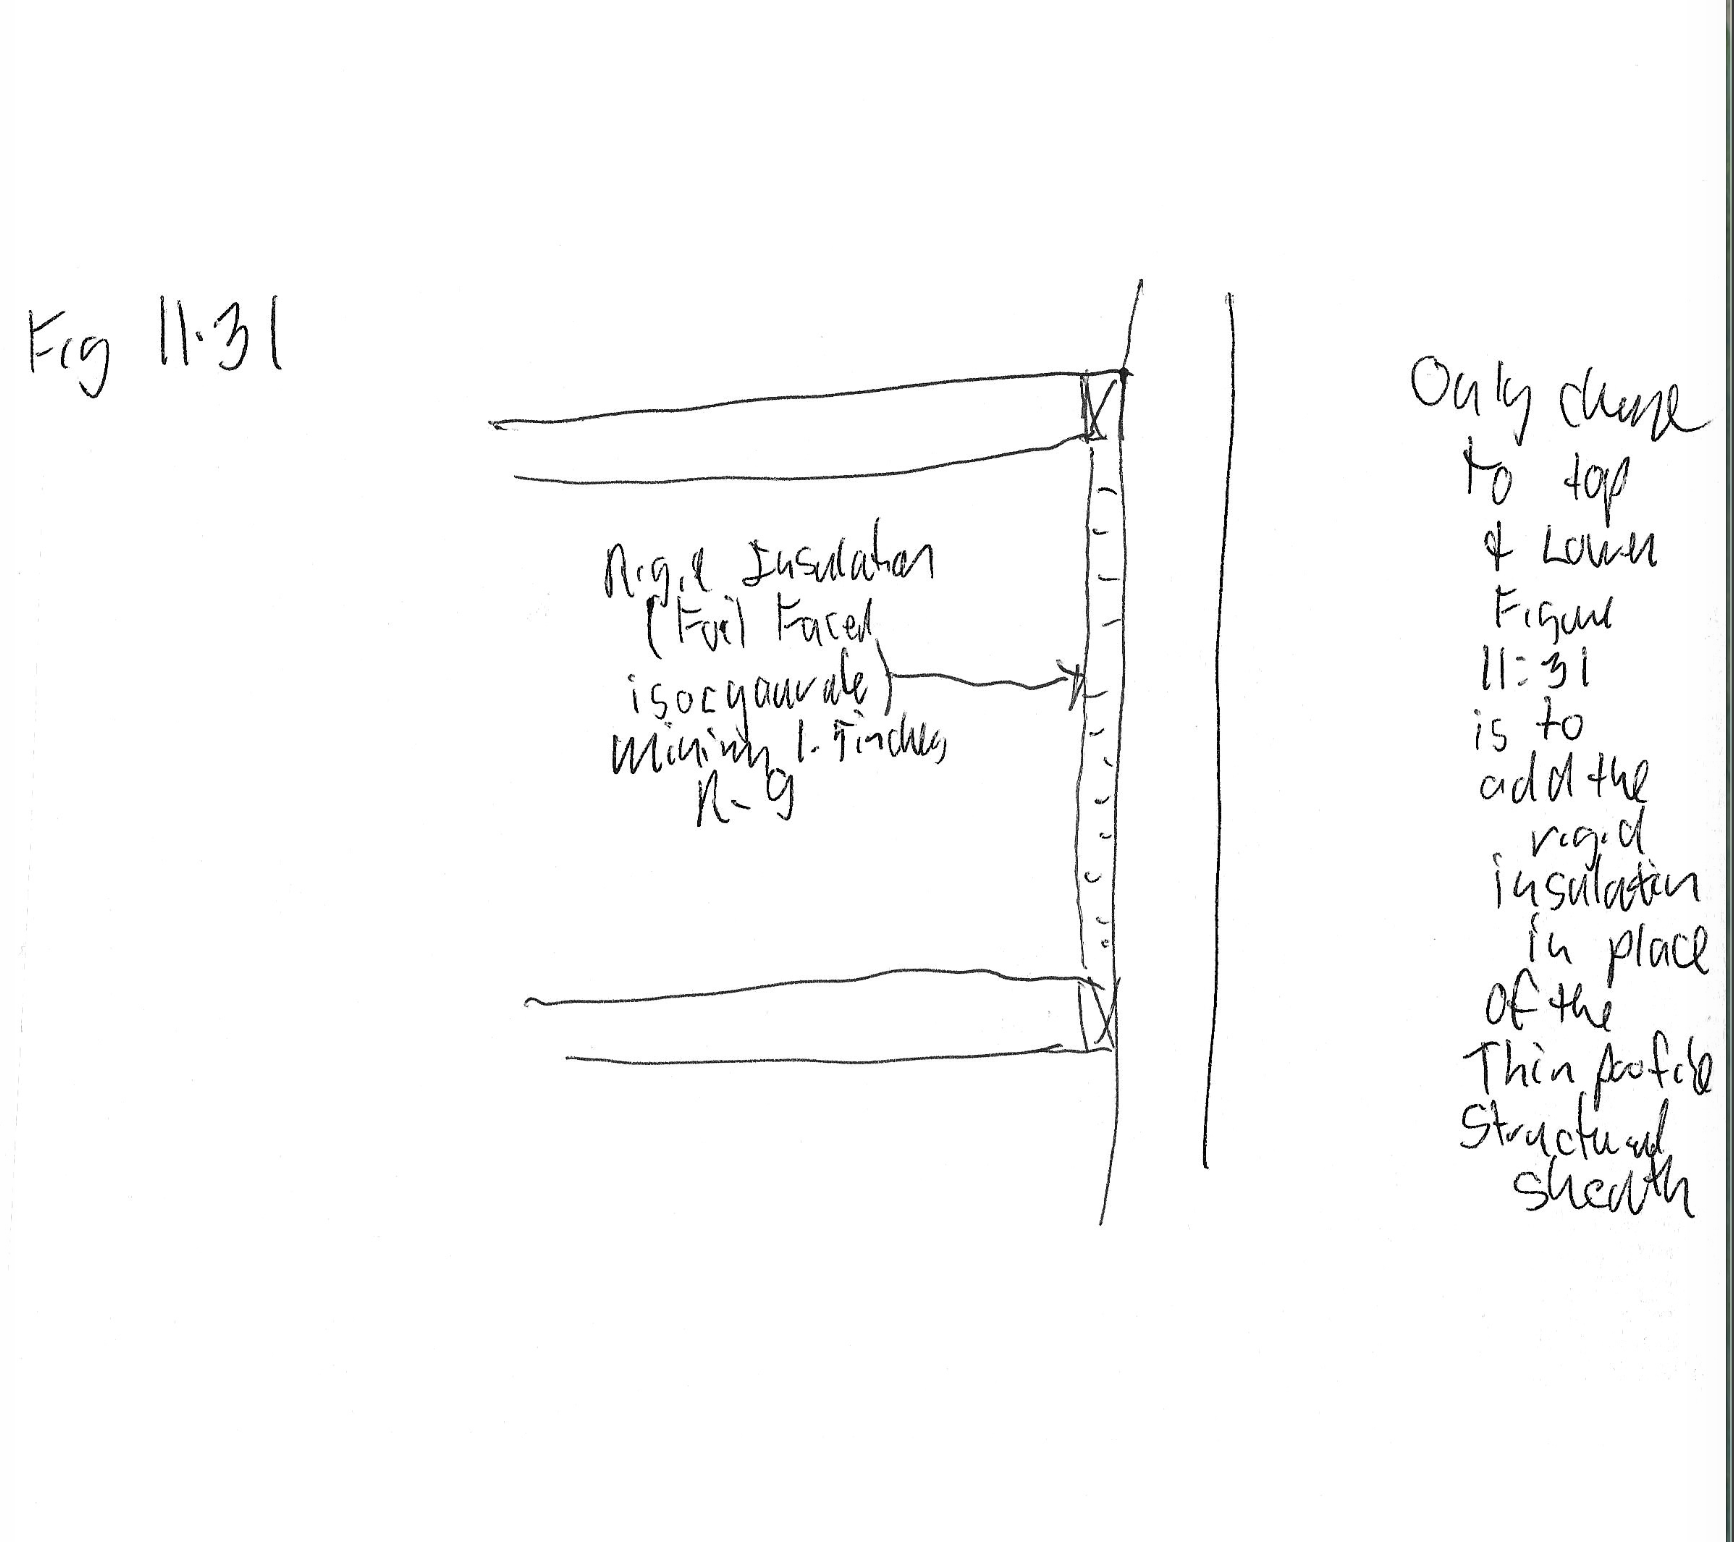 Fig 11.31
Rigid Insulation
(Foil Faced
isocyanurate)
minimum 1.5 inches
R-9
Only change
to top
& Lower
Figure
11:31
is to
add the
rigid
insulation
in place
of the
Thin profile
Structural
sheath